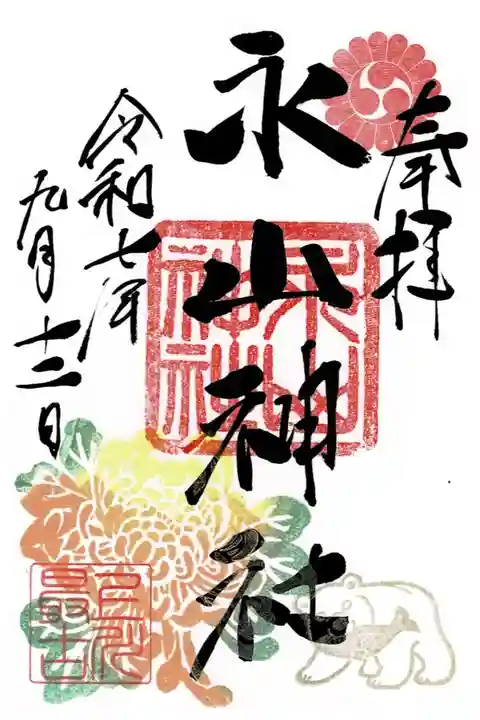 奉拝
永山神社
永山神社
令和七年
九月十二日